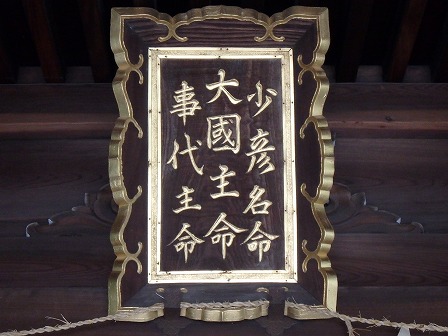 少彦名命
大國主命
事代主命